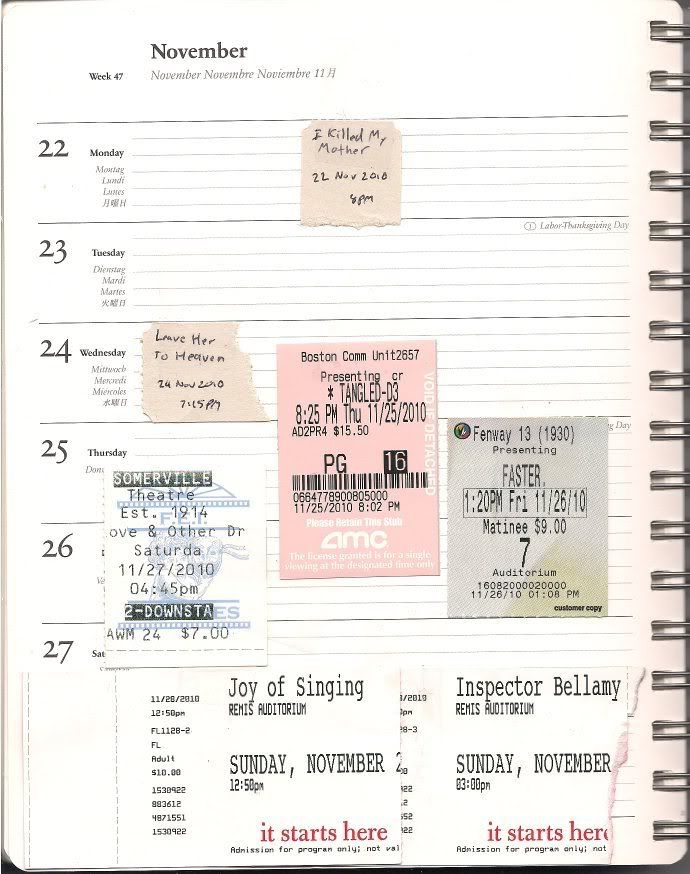 November
Week 47
November Novembre Noviembre 11月
22
Monday
Montag
Lundi
Lunes
月曜日
I Killed My
Mother
22 Nov 2010
8pm
① Labor-Thanksgiving Day
23
Tuesday
Dienstag
Mardi
Martes
火曜日
24
Wednesday
Mittwoch
Mercredi
Miércoles
水曜日
Leave Her
To Heaven
24 Nov 2010
7:15pm
Boston Comm Unit2657
Presenting cr
* TANGLED-D3
8:25 PM Thu 11/25/2010
AD2PR4 $15.50
PG 16
0664778900805000
11/25/2010 8:02 PM
Please Retain This Stub
amc
The license granted is for a single
viewing at the designated time only
VOID IF DETACHED
Day
Fenway 13 (1930)
Presenting
FASTER.
1:20PM Fri 11/26/10
Matinee $9.00
7
Auditorium
16082000020000
11/26/10 01:08 PM
customer copy
25
Thursday
SOMERVILLE
Theatre
Est. 1914
ove & Other Dr
Saturda
11/27/2010
04:45pm
2-DOWNSTA
AWM 24 $7.00
26
27
Sat
11/28/2010
12:50pm
FL1128-2
FL
Adult
$10.00
1530922
883612
4871551
1530922
Joy of Singing
REMIS AUDITORIUM
SUNDAY, NOVEMBER 2
12:50pm
it starts here
Admission for program only; not val
Inspector Bellamy
REMIS AUDITORIUM
SUNDAY, NOVEMBER
03:00pm
it starts here
Admission for program only; not